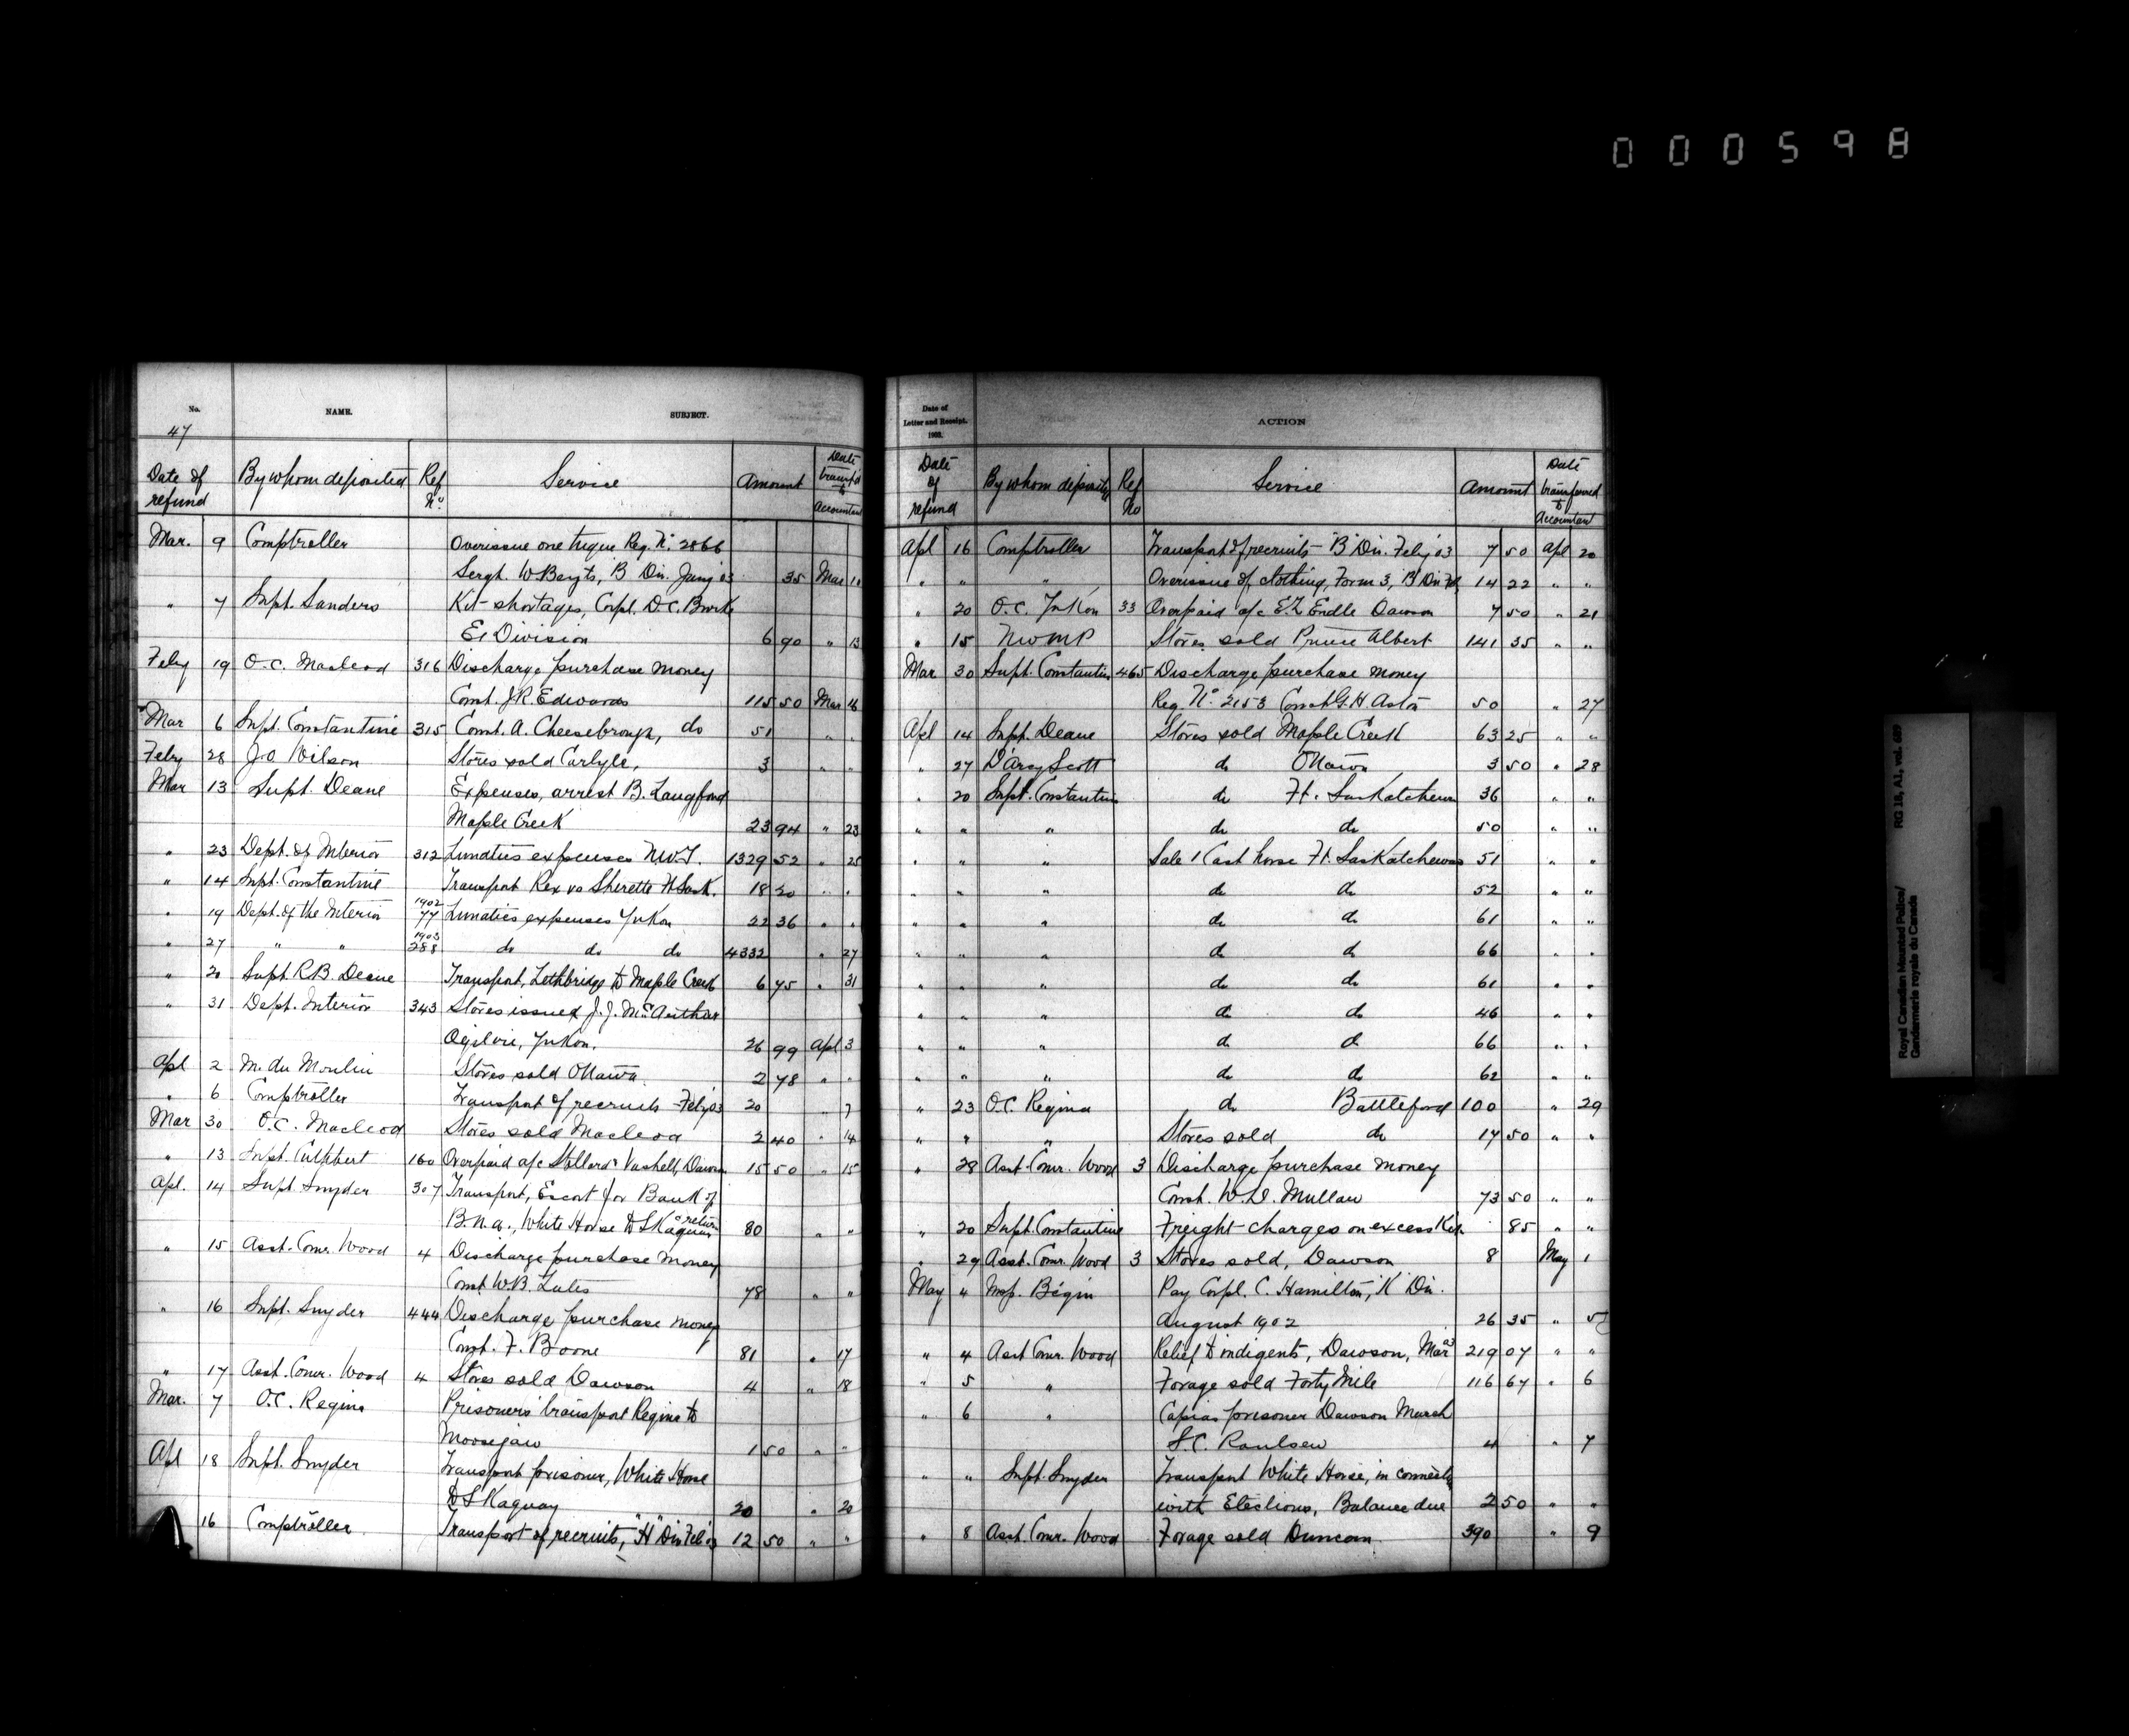 000598
No. NAME. SUBJECT.
47
Date of refund By whom deposited Ref No. Service Amount Date transf'd to Accountant
Mar. 9 Comptroller Overissue one tuque Reg. No. 2866
Sergt. W. Bayts, B Div. Jany 03 35 Mar 10
" 7 Supt. Sanders Kit shortages, Corpl. D.C. Burke
E. Division 6 90 " 13
Feby 19 O.C. Macleod 316 Discharge purchase money
Const. J.R. Edwards 115 50 Mar 16
Mar 6 Supt. Constantine 315 Const. A. Cheesebrough, do 51 " "
Feby 28 J.O. Wilson Stores sold Carlyle, 3 " "
Mar 13 Supt. Deane Expenses, arrest B. Langford
Maple Creek 23 94 " 23
" 23 Dept. of Interior 312 Lunatics expenses N.W.T. 1329 52 " 25
" 14 Supt. Constantine Transport Rex vs Sherette Ft. Sask. 18 20 " "
" 19 Dept. of the Interior 1902 77 Lunatics expenses Yukon 22 36 " "
" 27 " " 1903 288 do do do 4332 " 27
" 20 Supt. R.B. Deane Transport, Lethbridge to Maple Creek 6 75 " 31
" 31 Dept. Interior 343 Stores issued J.J. McArthur
Ogilvie, Yukon. 26 99 Apl 3
Apl 2 M. du Moulin Stores sold Ottawa 2 78 " "
" 6 Comptroller Transport of recruits - Feby 03 20 " 7
Mar 30 O.C. Macleod Stores sold Macleod 2 40 " 14
" 13 Supt. Cuthbert 160 Overpaid a/c Vashell, Dawson 15 50 " 15
Apl. 14 Supt Snyder 307 Transport, Escort for Bank of
B.N.A., White Horse to Skaguay & return 80 " "
" 15 Asst. Comr. Wood 4 Discharge purchase money
Const. W.B. Lutes 78 " "
" 16 Supt. Snyder 444 Discharge purchase money
Const. F. Boone 81 " 17
" 17 Asst. Comr. Wood 4 Stores sold Dawson 4 " 18
Mar. 7 O.C. Regina Prisoners' transport Regina to
Moosejaw 1 50 " "
Apl 18 Supt. Snyder Transport prisoner, White Horse
to Skaguay 20 " 20
16 Comptroller Transport of recruits, "H" Div Feb 03 12 50 " "
Date of Letter and Receipt. 1903. ACTION
Date of refund By whom deposited Ref No Service Amount Date transferred to Accountant
Apl 16 Comptroller Transport of recruits - "B" Div. Feby 03 7 50 Apl 20
" " " Overissue of clothing, Form 3, "B" Div 14 22 " "
" 20 O.C. Yukon 33 Overpaid a/c E.Z. Endle Dawson 7 50 " 21
" 15 NWMP Stores sold Prince Albert 141 35 " "
Mar 30 Supt. Constantine 465 Discharge purchase money
Reg. No. 2153 Const G.H. Aston 50 " 27
Apl 14 Supt. Deane Stores sold Maple Creek 63 25 " "
" 27 D'Arcy Scott do Ottawa 3 50 " 28
" 20 Supt. Constantine do Ft. Saskatchewan 36 " "
" " " do do 50 " "
" " " Sale 1 Cast horse Ft. Saskatchewan 51 " "
" " " do do 52 " "
" " " do do 61 " "
" " " do do 66 " "
" " " do do 61 " "
" " " do do 46 " "
" " " do do 66 " "
" " " do do 62 " "
" 23 O.C. Regina do Battleford 100 " 29
" " " Stores sold do 17 50 " "
" 28 Asst. Comr. Wood 3 Discharge purchase money
Const. W.D. Mullan 73 50 " "
" 20 Supt. Constantine Freight charges on excess Kit. 85 " "
" 29 Asst. Comr. Wood 3 Stores sold, Dawson 8 May 1
May 4 Insp. Bégin Pay Corpl. C. Hamilton, "K" Div.
August 1902 26 35 " 5
" 4 Asst Comr. Wood Relief to indigents, Dawson, Mar 03 219 07 " "
" 5 " Forage sold Forty Mile 116 67 " 6
" 6 " Capias prisoner Dawson March
S.C. Raulsen 4 " 7
" " Supt. Snyder Transport White Horse, in connectn
with Elections, Balance due 2 50 " "
" 8 Asst. Comr. Wood Forage sold Duncan 390 " 9
Royal Canadian Mounted Police/ RG 18, A1, vol. 689
Gendarmerie royale du Canada